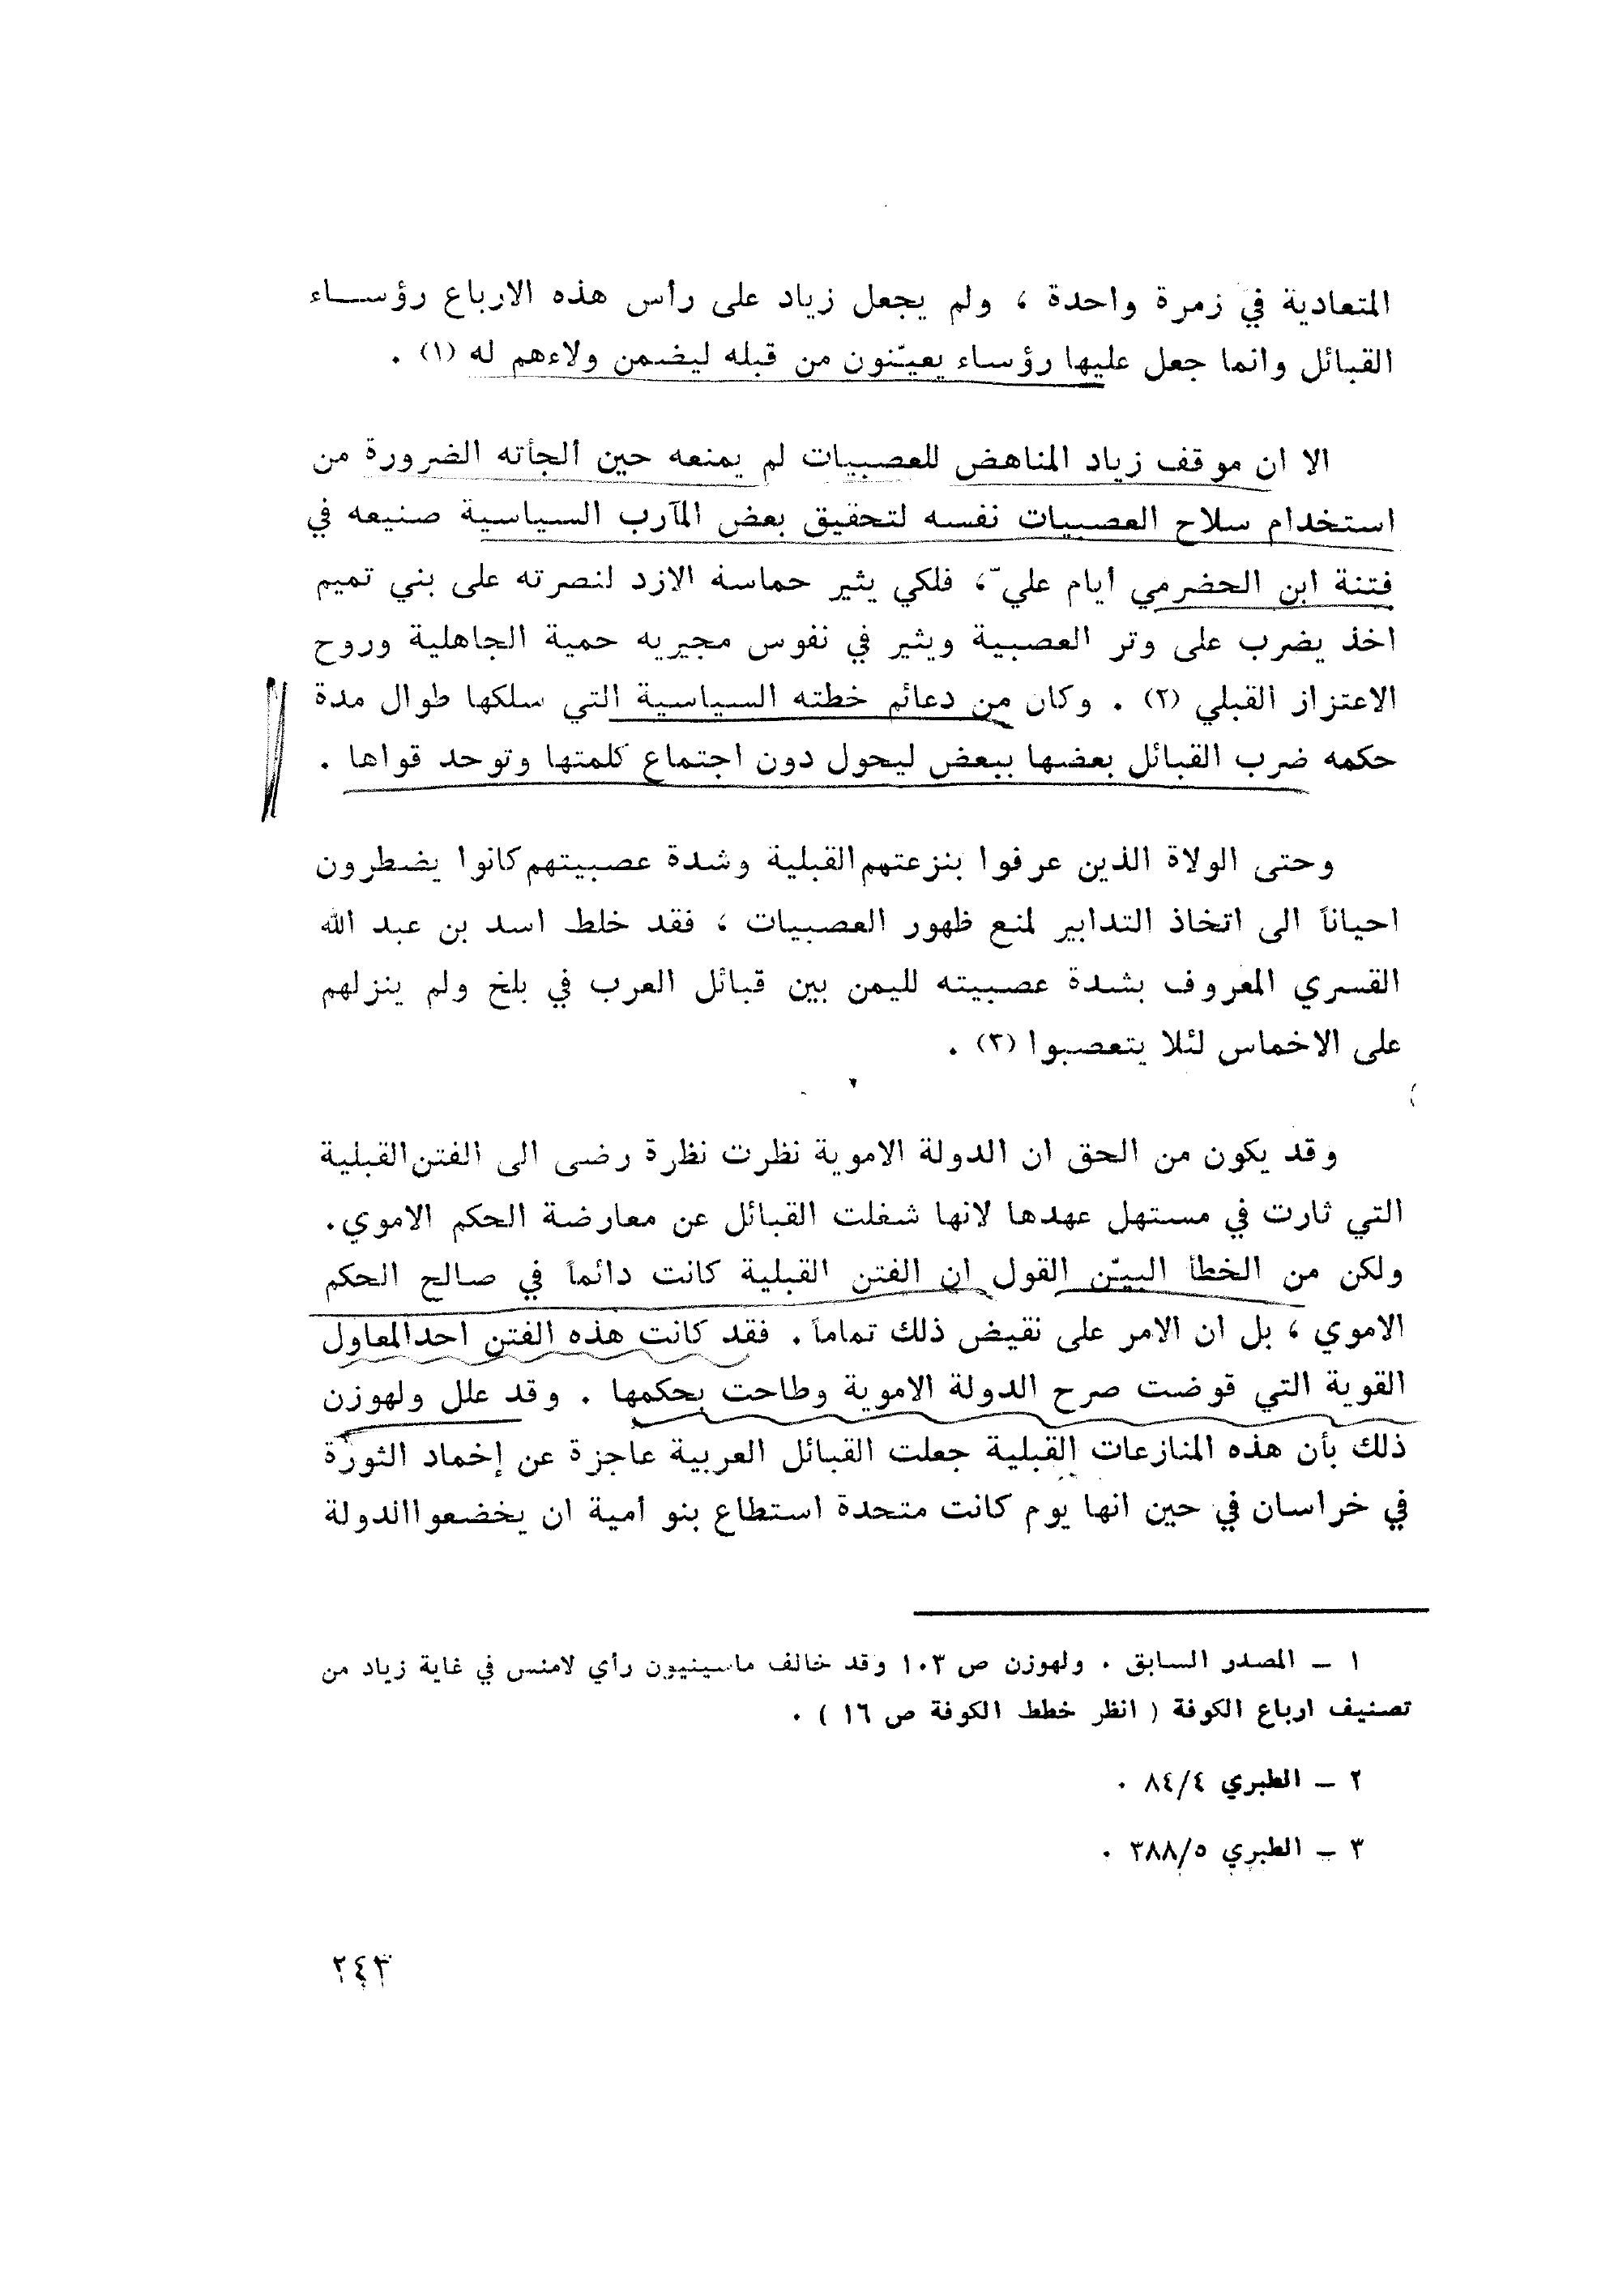 المتعادية في زمرة واحدة ، ولم يجعل زياد على رأس هذه الارباع رؤســاء
القبائل وانما جعل عليها رؤساء يعيّنون من قبله ليضمن ولاءهم له (١) .
الا ان موقف زياد المناهض للعصبيات لم يمنعه حين ألجأته الضرورة من
استخدام سلاح العصبيات نفسه لتحقيق بعض المآرب السياسية صنيعه في
فتنة ابن الحضرمي أيام عليّ ، فلكي يثير حماسة الازد لنصرته على بني تميم
اخذ يضرب على وتر العصبية ويثير في نفوس مجيريه حمية الجاهلية وروح
الاعتزاز القبلي (٢) . وكان من دعائم خطته السياسية التي سلكها طوال مدة
حكمه ضرب القبائل بعضها ببعض ليحول دون اجتماع كلمتها وتوحد قواها .
وحتى الولاة الذين عرفوا بنزعتهم القبلية وشدة عصبيتهم كانوا يضطرون
احياناً الى اتخاذ التدابير لمنع ظهور العصبيات ، فقد خلط اسد بن عبد الله
القسري المعروف بشدة عصبيته لليمن بين قبائل العرب في بلخ ولم ينزلهم
على الاخماس لئلا يتعصبوا (٣) .
وقد يكون من الحق ان الدولة الاموية نظرت نظرة رضى الى الفتن القبلية
التي ثارت في مستهل عهدها لانها شغلت القبائل عن معارضة الحكم الاموي.
ولكن من الخطأ البيّن القول ان الفتن القبلية كانت دائماً في صالح الحكم
الاموي ، بل ان الامر على نقيض ذلك تماماً . فقد كانت هذه الفتن احد المعاول
القوية التي قوضت صرح الدولة الاموية وطاحت بحكمها . وقد علل ولهوزن
ذلك بأن هذه المنازعات القبلية جعلت القبائل العربية عاجزة عن إخماد الثورة
في خراسان في حين انها يوم كانت متحدة استطاع بنو أمية ان يخضعوا الدولة
١ ـ المصدر السابق . ولهوزن ص ١٠٣ وقد خالف ماسينيون رأي لامنس في غاية زياد من
تصنيف ارباع الكوفة ( انظر خطط الكوفة ص ١٦ ) .
٢ ـ الطبري ٨٤/٤ .
٣ ـ الطبري ٣٨٨/٥ .
٢٤٣